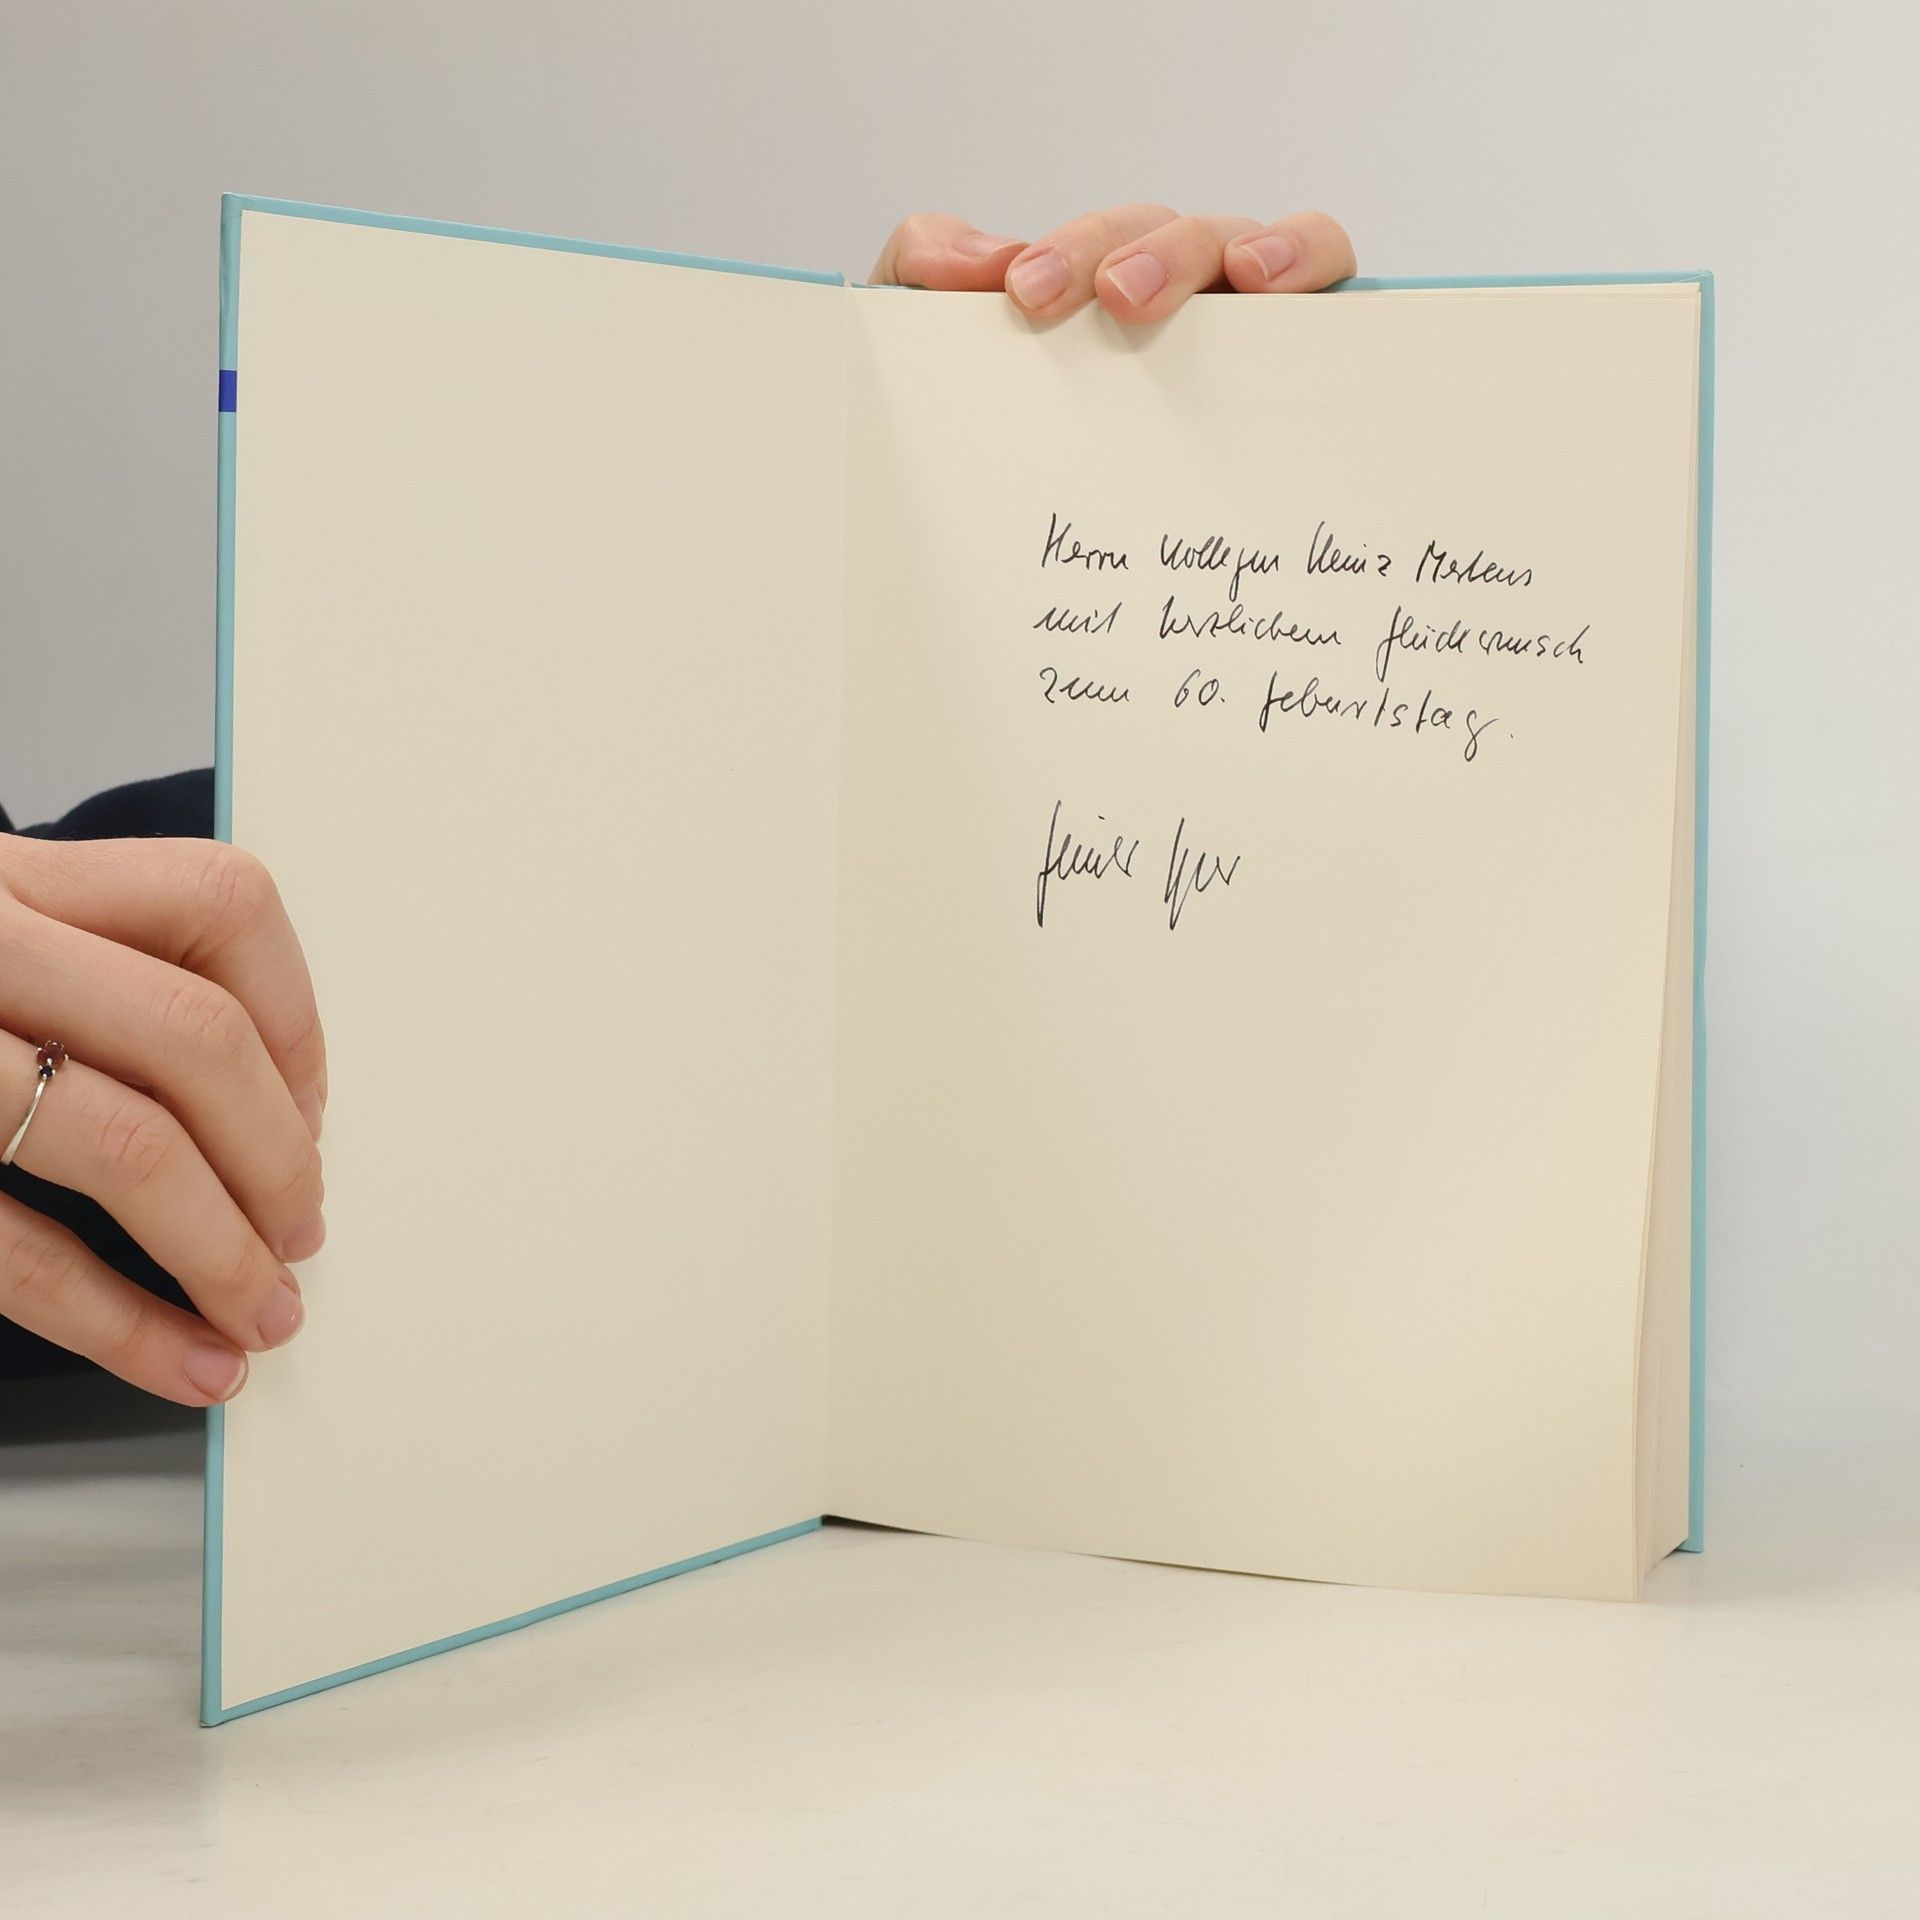 Herrn Kollegen Heinz Mertens
mit herzlichem Glückwunsch
zum 60. Geburtstag.